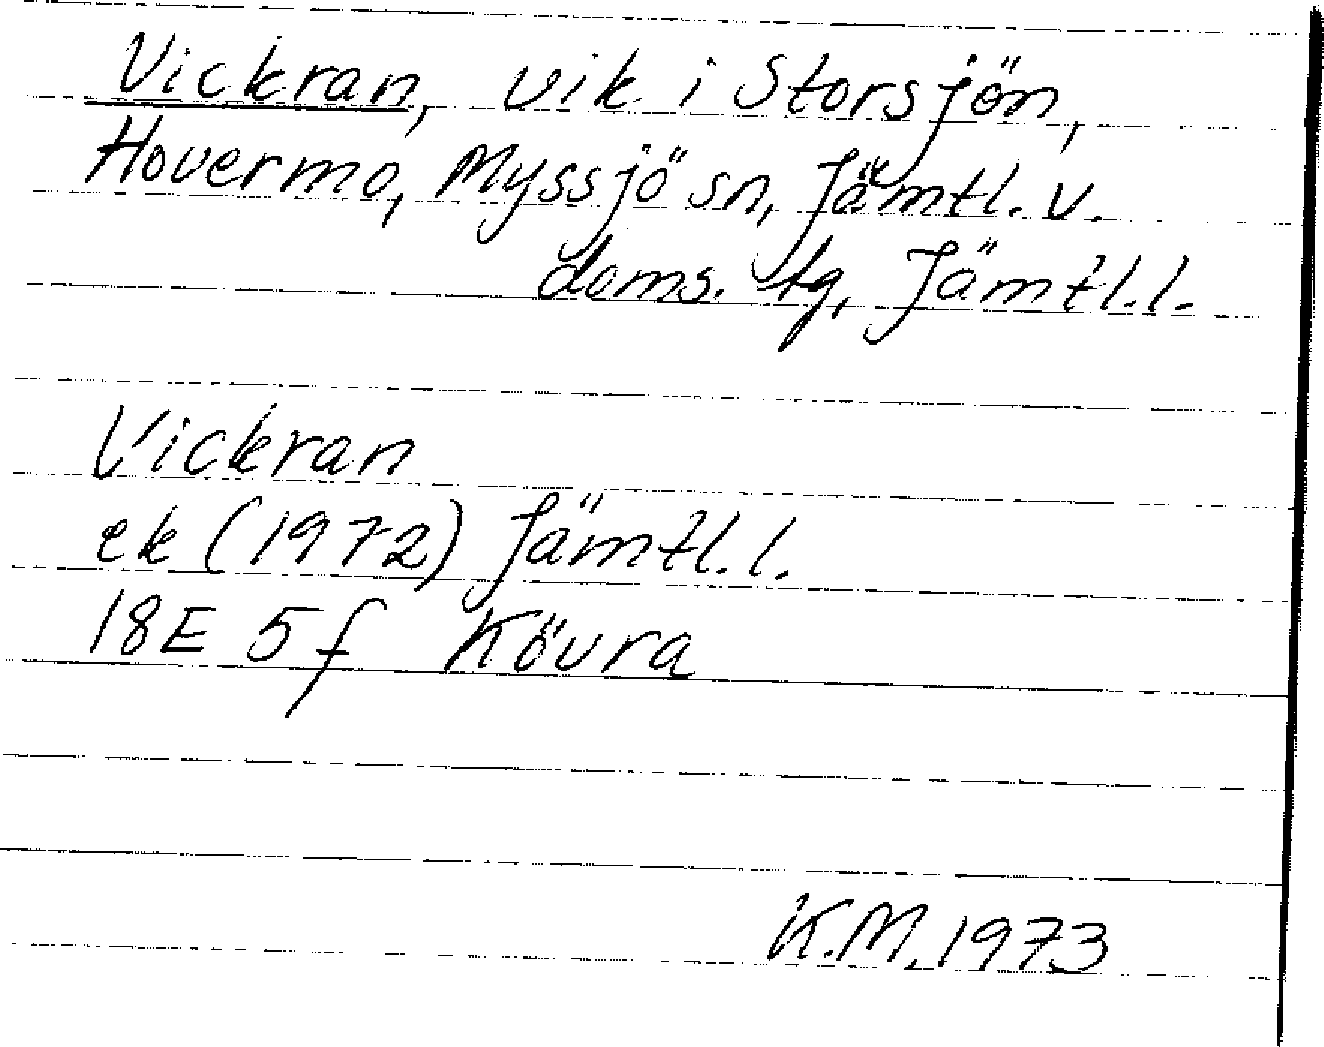 Vickran, vik i Storsjön,
Hovermo, Myssjö sn, Jämtl. v.
doms. tg, Jämtl.l.
Vickran
ek (1972) Jämtl. l.
18E 5f Kövra
K.M. 1973